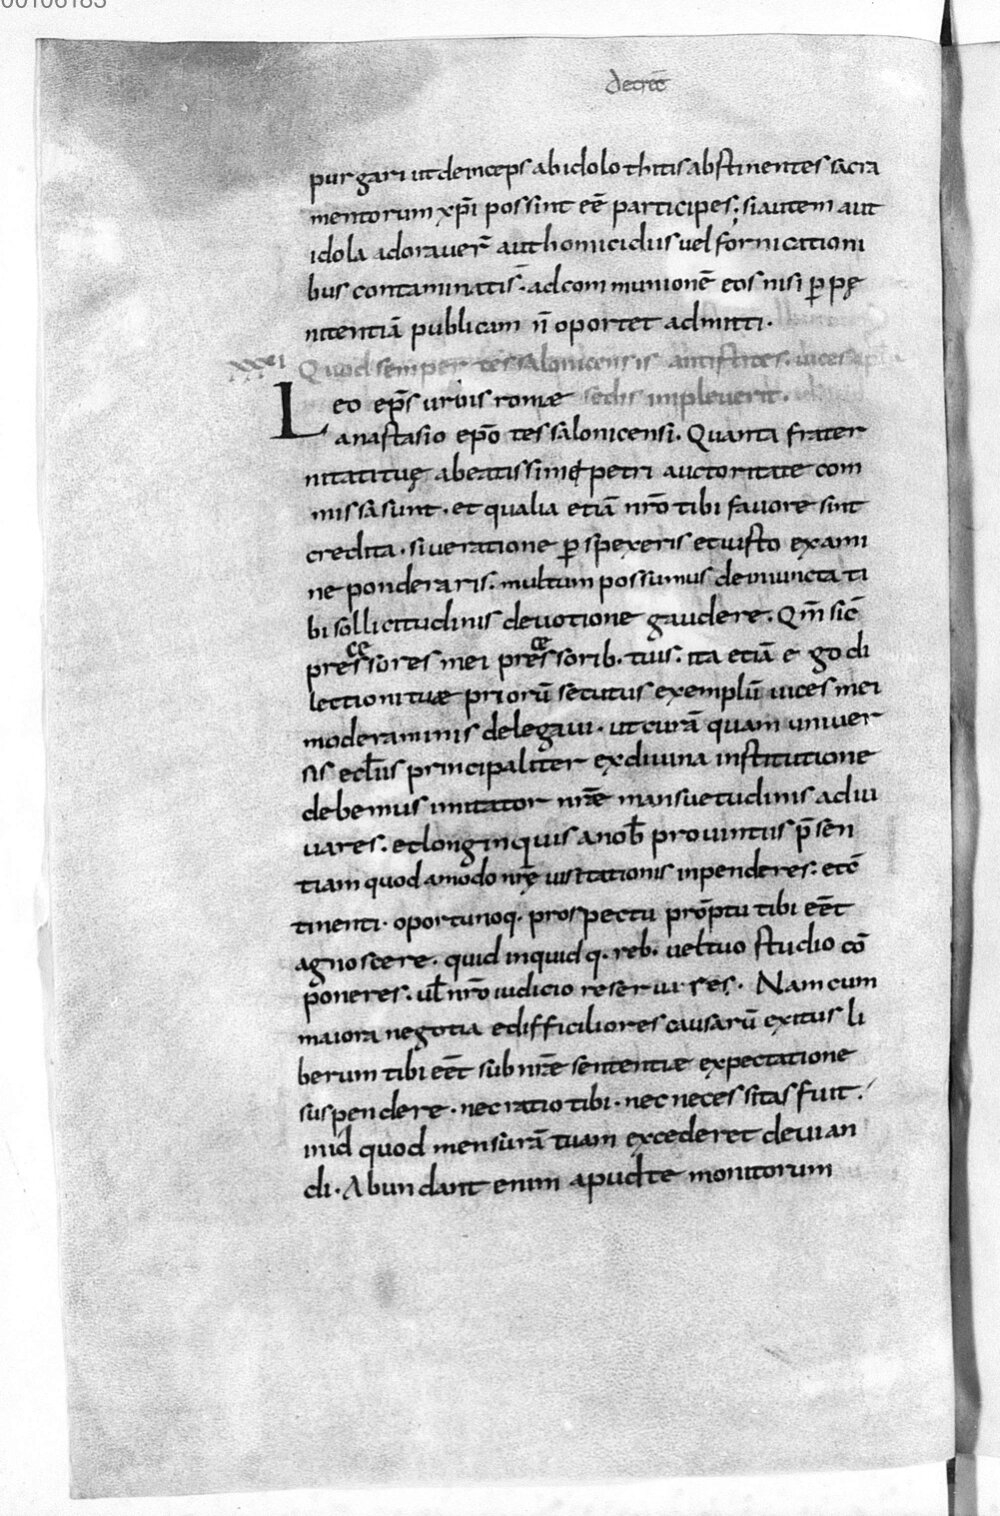 00106183
decret̄
purgari ut deinceps ab idolothitis abstinentes sacra
mentorum xp̄i possint eē participes; si autem aut
idola adorauer̄ aut homicidiis uel fornicationi
bus contaminatis̄. ad communionē eos nisi ꝑ pę
nitentiā publicam n̄ oportet admitti.
xxxii Quod semper tessalonicensis antistites. uices apl̄
Leo ep̄s urbis romæ sedis impleuerit.
anastasio ep̄o tessalonicensi. Quanta frater
nitati tuę a beatissimę petri auctoritate com
missa sunt. et qualia etiā nr̄o tibi fauore sint
credita. si ueratione ꝑspexeris et uisto exami
ne ponderaris. multum possumus de iniuncta ti
bi sollicitudinis deuotione gaudere. Qm̄ sic̄
pressores mei pressorib. tuis. ita etiā ego di
ce ce
lectioni tuæ priorū secutus exemplū uices mei
moderaminis delegaui. ut curā quam uniuer
sis ecl̄iis principaliter ex diuina institutione
debemus imitator nr̄e mansuetudinis adiu
uares. et longinquis a nob̄ prouintiis p̄sen
tiam quod amodo nr̄ę uisitationis inpenderes. et cō
tinenti. oportunoq. prospectu prōptu tibi eēt
agnoscere. quid in quidq. reb. uel tuo studio cō
poneres. ul̄ nr̄o iudicio reseruares. Nam cum
maiora negotia e difficiliores causarū exitus li
berum tibi eēt sub nr̄e sententiæ expectatione
suspendere. nec ratio tibi. nec necessitas fuit.
in id quod mensurā tuam excederet deuian
di. Abundant enim apud te monitorum